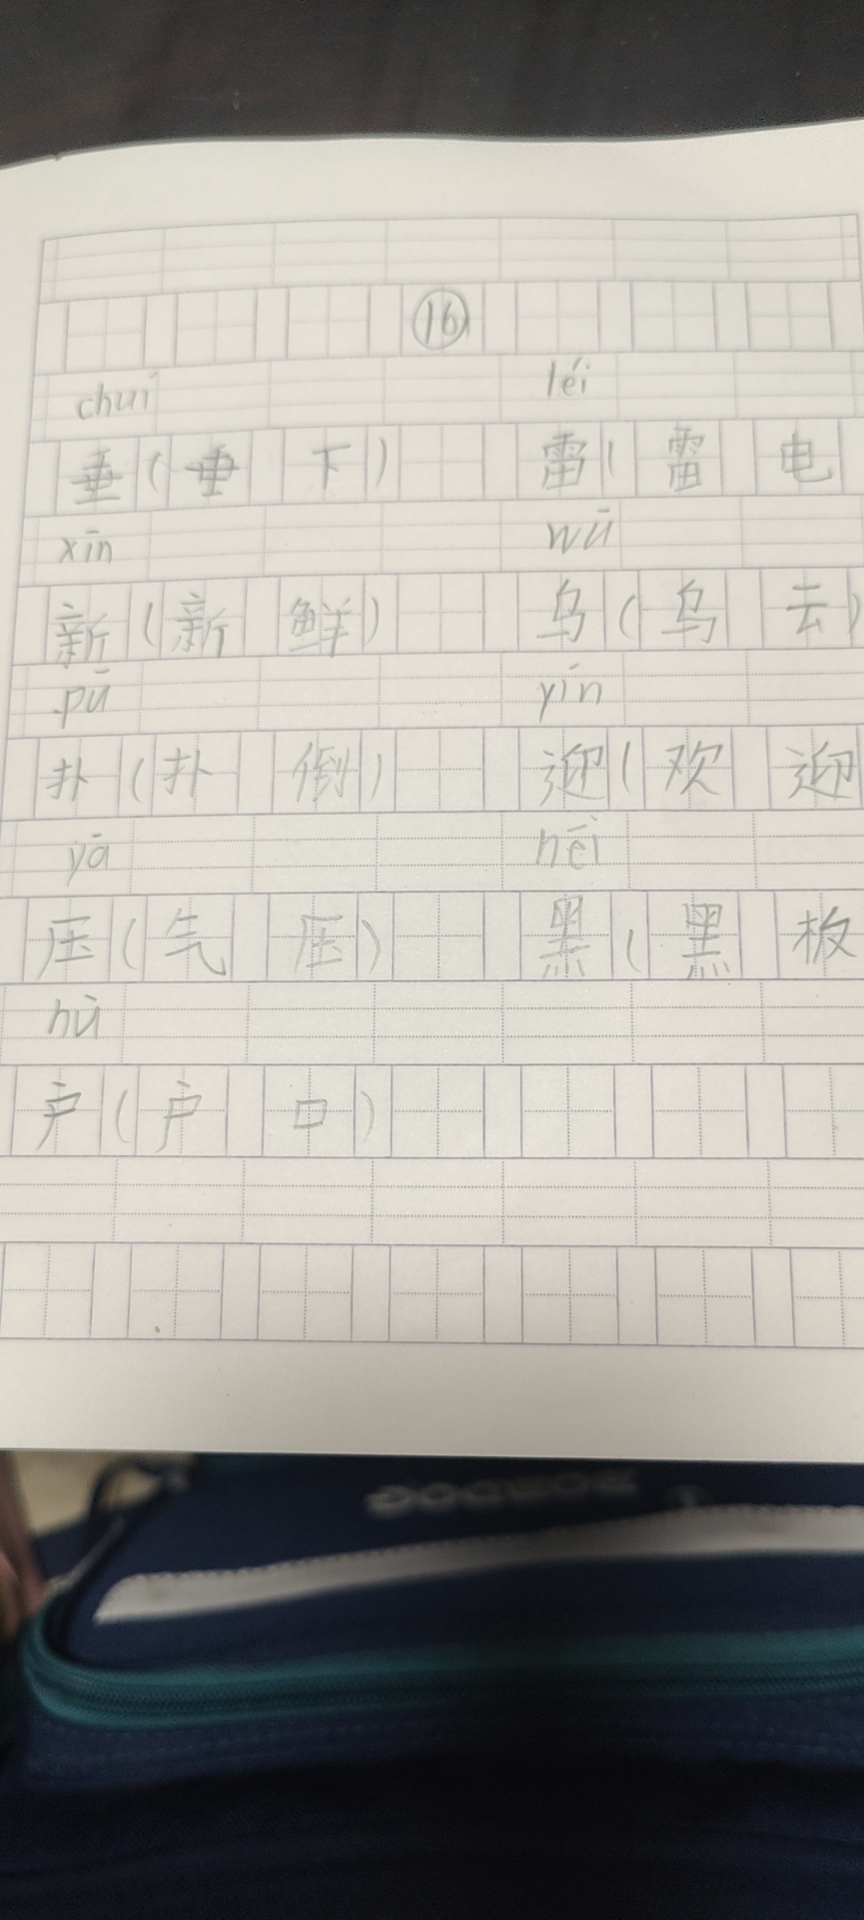 ⑯
chuí léi
垂(垂下) 雷(雷电
xīn wū
新(新鲜) 乌(乌去)
pū yín
扑(扑倒) 迎(欢迎
yā hēi
压(气压) 黑(黑板
hù
户(户口)